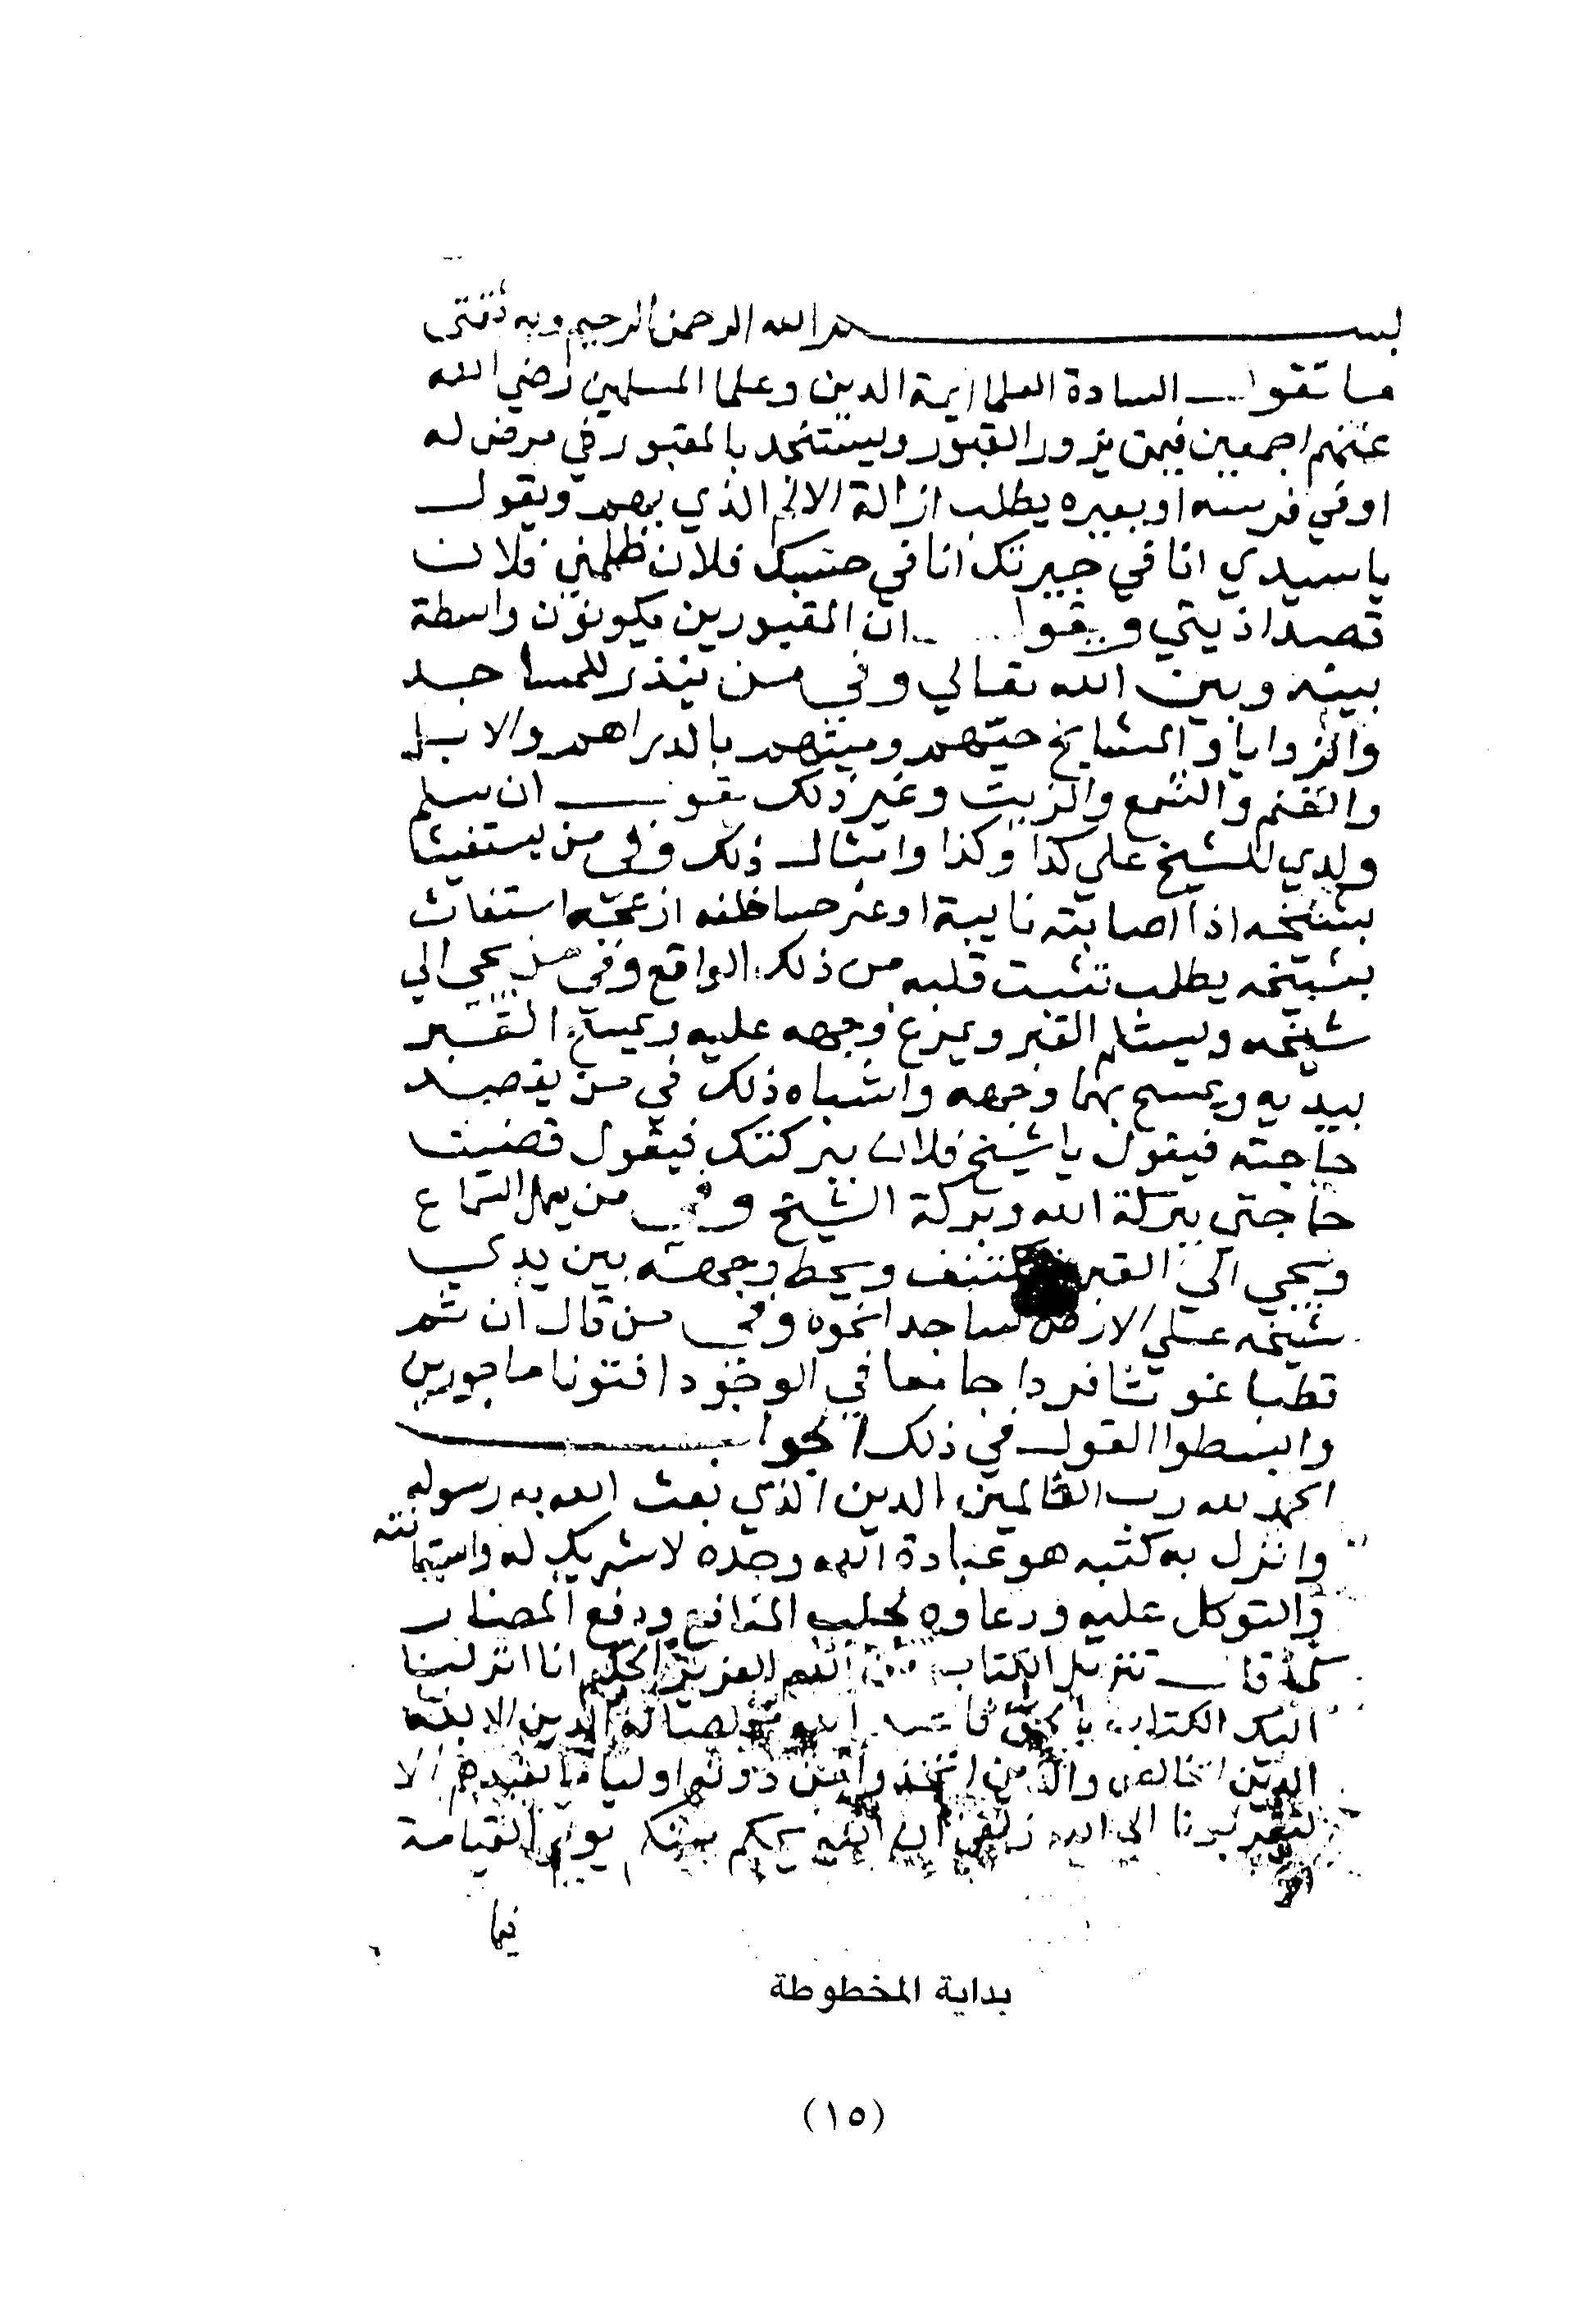 بسم الله الرحمن الرحيم وبه ثقتي
ما تقول السادة العلما ايمة الدين وعلما المسلمين رضي الله
عنهم اجمعين فيمن يزور القبور ويستنجد بالمقبور في مرض له
او في فرسه او بعيره يطلب ازالة الالم الذي بهم ويقول
يا سيدي انا في جيرتك انا في حسبك فلان ظلمني فلان
قصد اذيتي ويقول ان المقبورين يكونون واسطة
بينه وبين الله تعالي وفي من ينذر للمساجد
والزوايا والمشايخ حيهم وميتهم بالدراهم والابل
والغنم والشمع والزيت وغير ذلك يقول ان سلم
ولدي للشيخ علي كذا وكذا وامثال ذلك وفي من يستغيث
بشيخه اذا اصابته نايبة او غير حسا خلفه ازعجه استغاث
بشيخه يطلب تثبت قلبه من ذلك الواقع وفي من يجي الي
شيخه ويستلم القبر ويمرغ وجهه عليه ويمسح القبر
بيديه ويمسح بهما وجهه واشباه ذلك في من يقصد
حاجته فيقول يا شيخ فلان ببركتك فيقول قضيت
حاجتي ببركة الله وبركة الشيخ وفي من يعمل السماع
ويجي الي القبر فيكشف ويحط وجهه بين يدي
شيخه علي الارض ساجدا نحوه وفي من قال ان ثم
قطبا غوثا فردا جامعا في الوجود افتونا ماجورين
وابسطوا القول في ذلك الجواب
الحمد لله رب العالمين الدين الذي بعث الله به رسوله
وانزل به كتبه هو عبادة الله وحده لا شريك له واستعانته
والتوكل عليه ودعاوه لجلب المنافع ودفع المضار
كما قال تنزيل الكتاب من الله العزيز الحكيم انا انزلنا
اليك الكتاب بالحق فاعبد الله مخلصا له الدين الا لله
الدين الخالص والذين اتخذوا من دونه اوليا ما نعبدهم الا
ليقربونا الي الله زلفي ان الله يحكم بينهم يوم القيامة
فيما
بداية المخطوطة
(١٥)